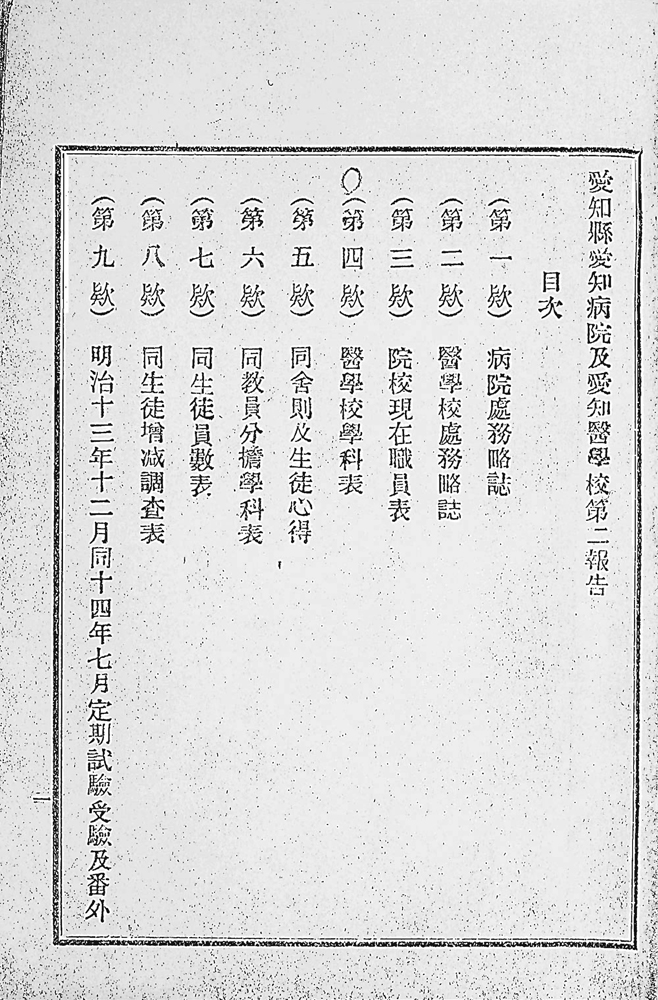 愛知縣愛知病院及愛知醫學校第二報告
目次
(第一欵) 病院處務略誌
(第二欵) 醫學校處務略誌
(第三欵) 院校現在職員表
○(第四欵) 醫學校學科表
(第五欵) 同舍則及生徒心得
(第六欵) 同教員分擔學科表
(第七欵) 同生徒員數表
(第八欵) 同生徒增減調查表
(第九欵) 明治十三年十二月同十四年七月定期試驗受驗及番外
一